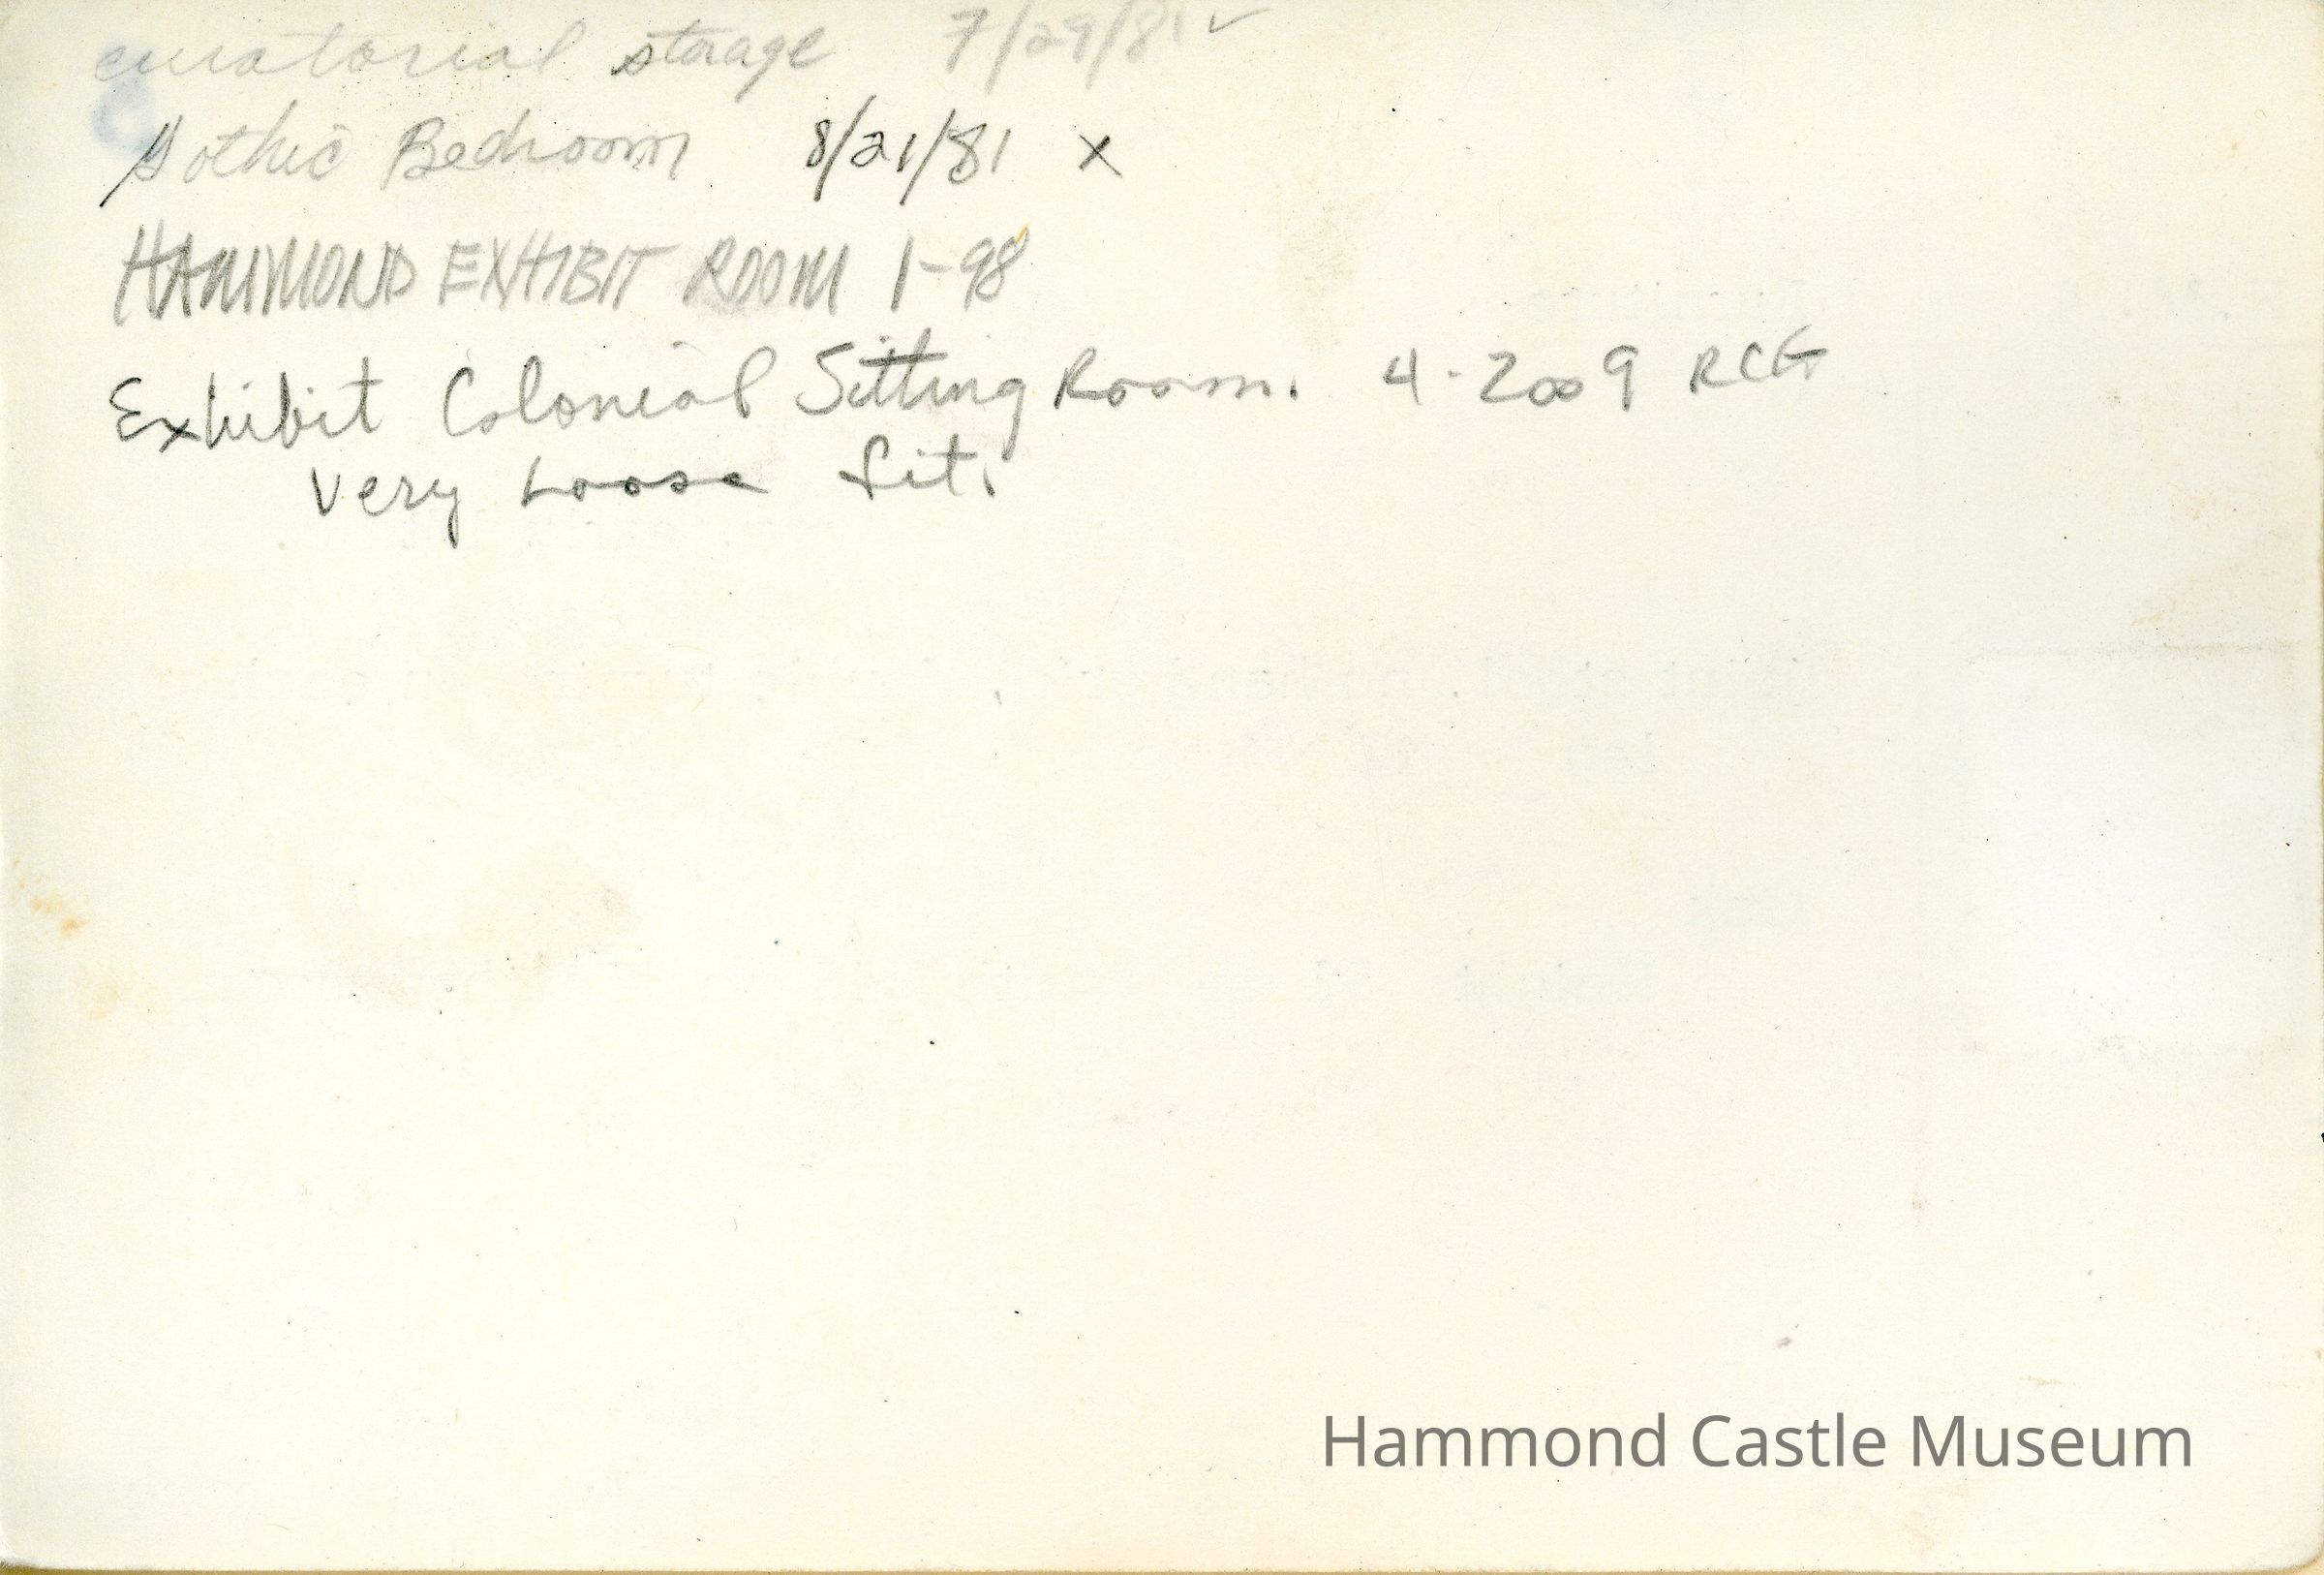 curatorial storage 7/29/81 ✓
Gothic Bedroom 8/21/81 x
HAMMOND EXHIBIT ROOM 1-98
Exhibit Colonial Sitting Room. 4-2009 RCG
Very Loose fit.
Hammond Castle Museum